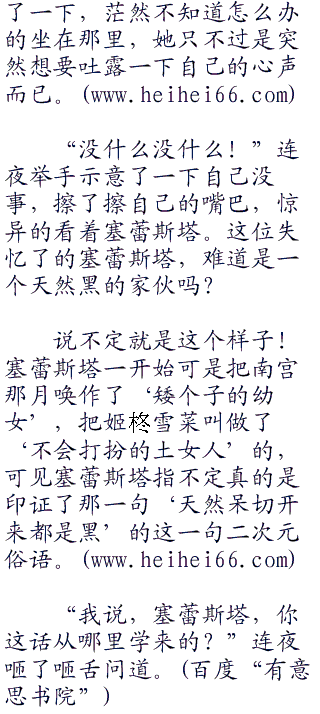 了一下，茫然不知道怎么办
的坐在那里，她只不过是突
然想要吐露一下自己的心声
而已。(www.heihei66.com)
“没什么没什么！”连
夜举手示意了一下自己没
事，擦了擦自己的嘴巴，惊
异的看着塞蕾斯塔。这位失
忆了的塞蕾斯塔，难道是一
个天然黑的家伙吗？
说不定就是这个样子！
塞蕾斯塔一开始可是把南宫
那月唤作了‘矮个子的幼
女’，把姬柊雪菜叫做了
‘不会打扮的土女人’的，
可见塞蕾斯塔指不定真的是
印证了那一句‘天然呆切开
来都是黑’的这一句二次元
俗语。(www.heihei66.com)
“我说，塞蕾斯塔，你
这话从哪里学来的？”连夜
咂了咂舌问道。(百度“有意
思书院”)